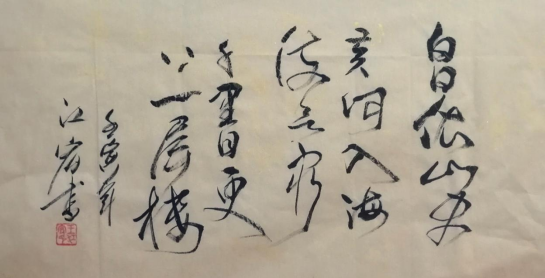 白日依山尽
黄河入海
流欲穷
千里目更
上一层楼
年
江书